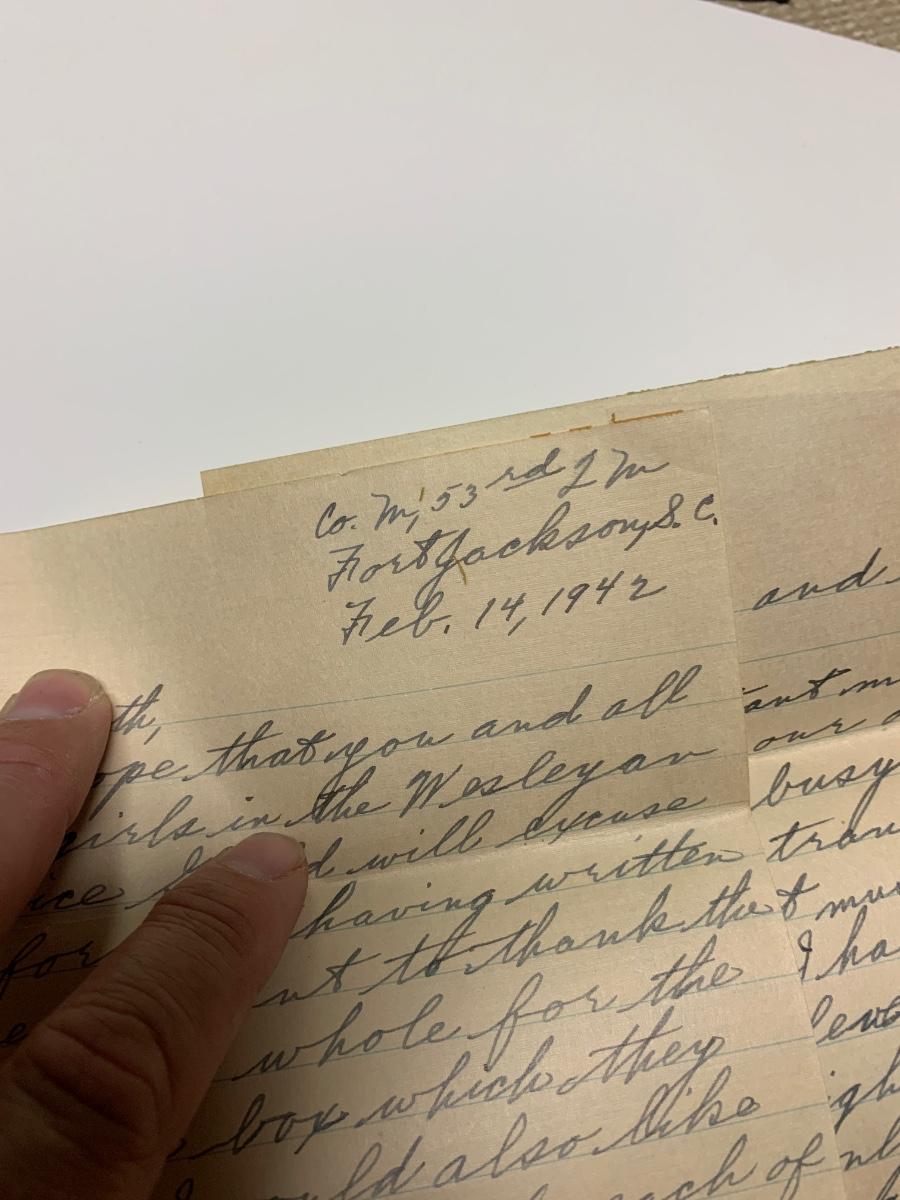 Co. M, 53rd I M
Fort Jackson, S. C.
Feb. 14, 1942
th,
ope that you and all
girls in the Wesleyan
ice d will excuse
for having written
nt to thank the
whole for the
box which they
ld also like
each of
and
ant m
our
busy
tran
t mu
I ha
eve
igh